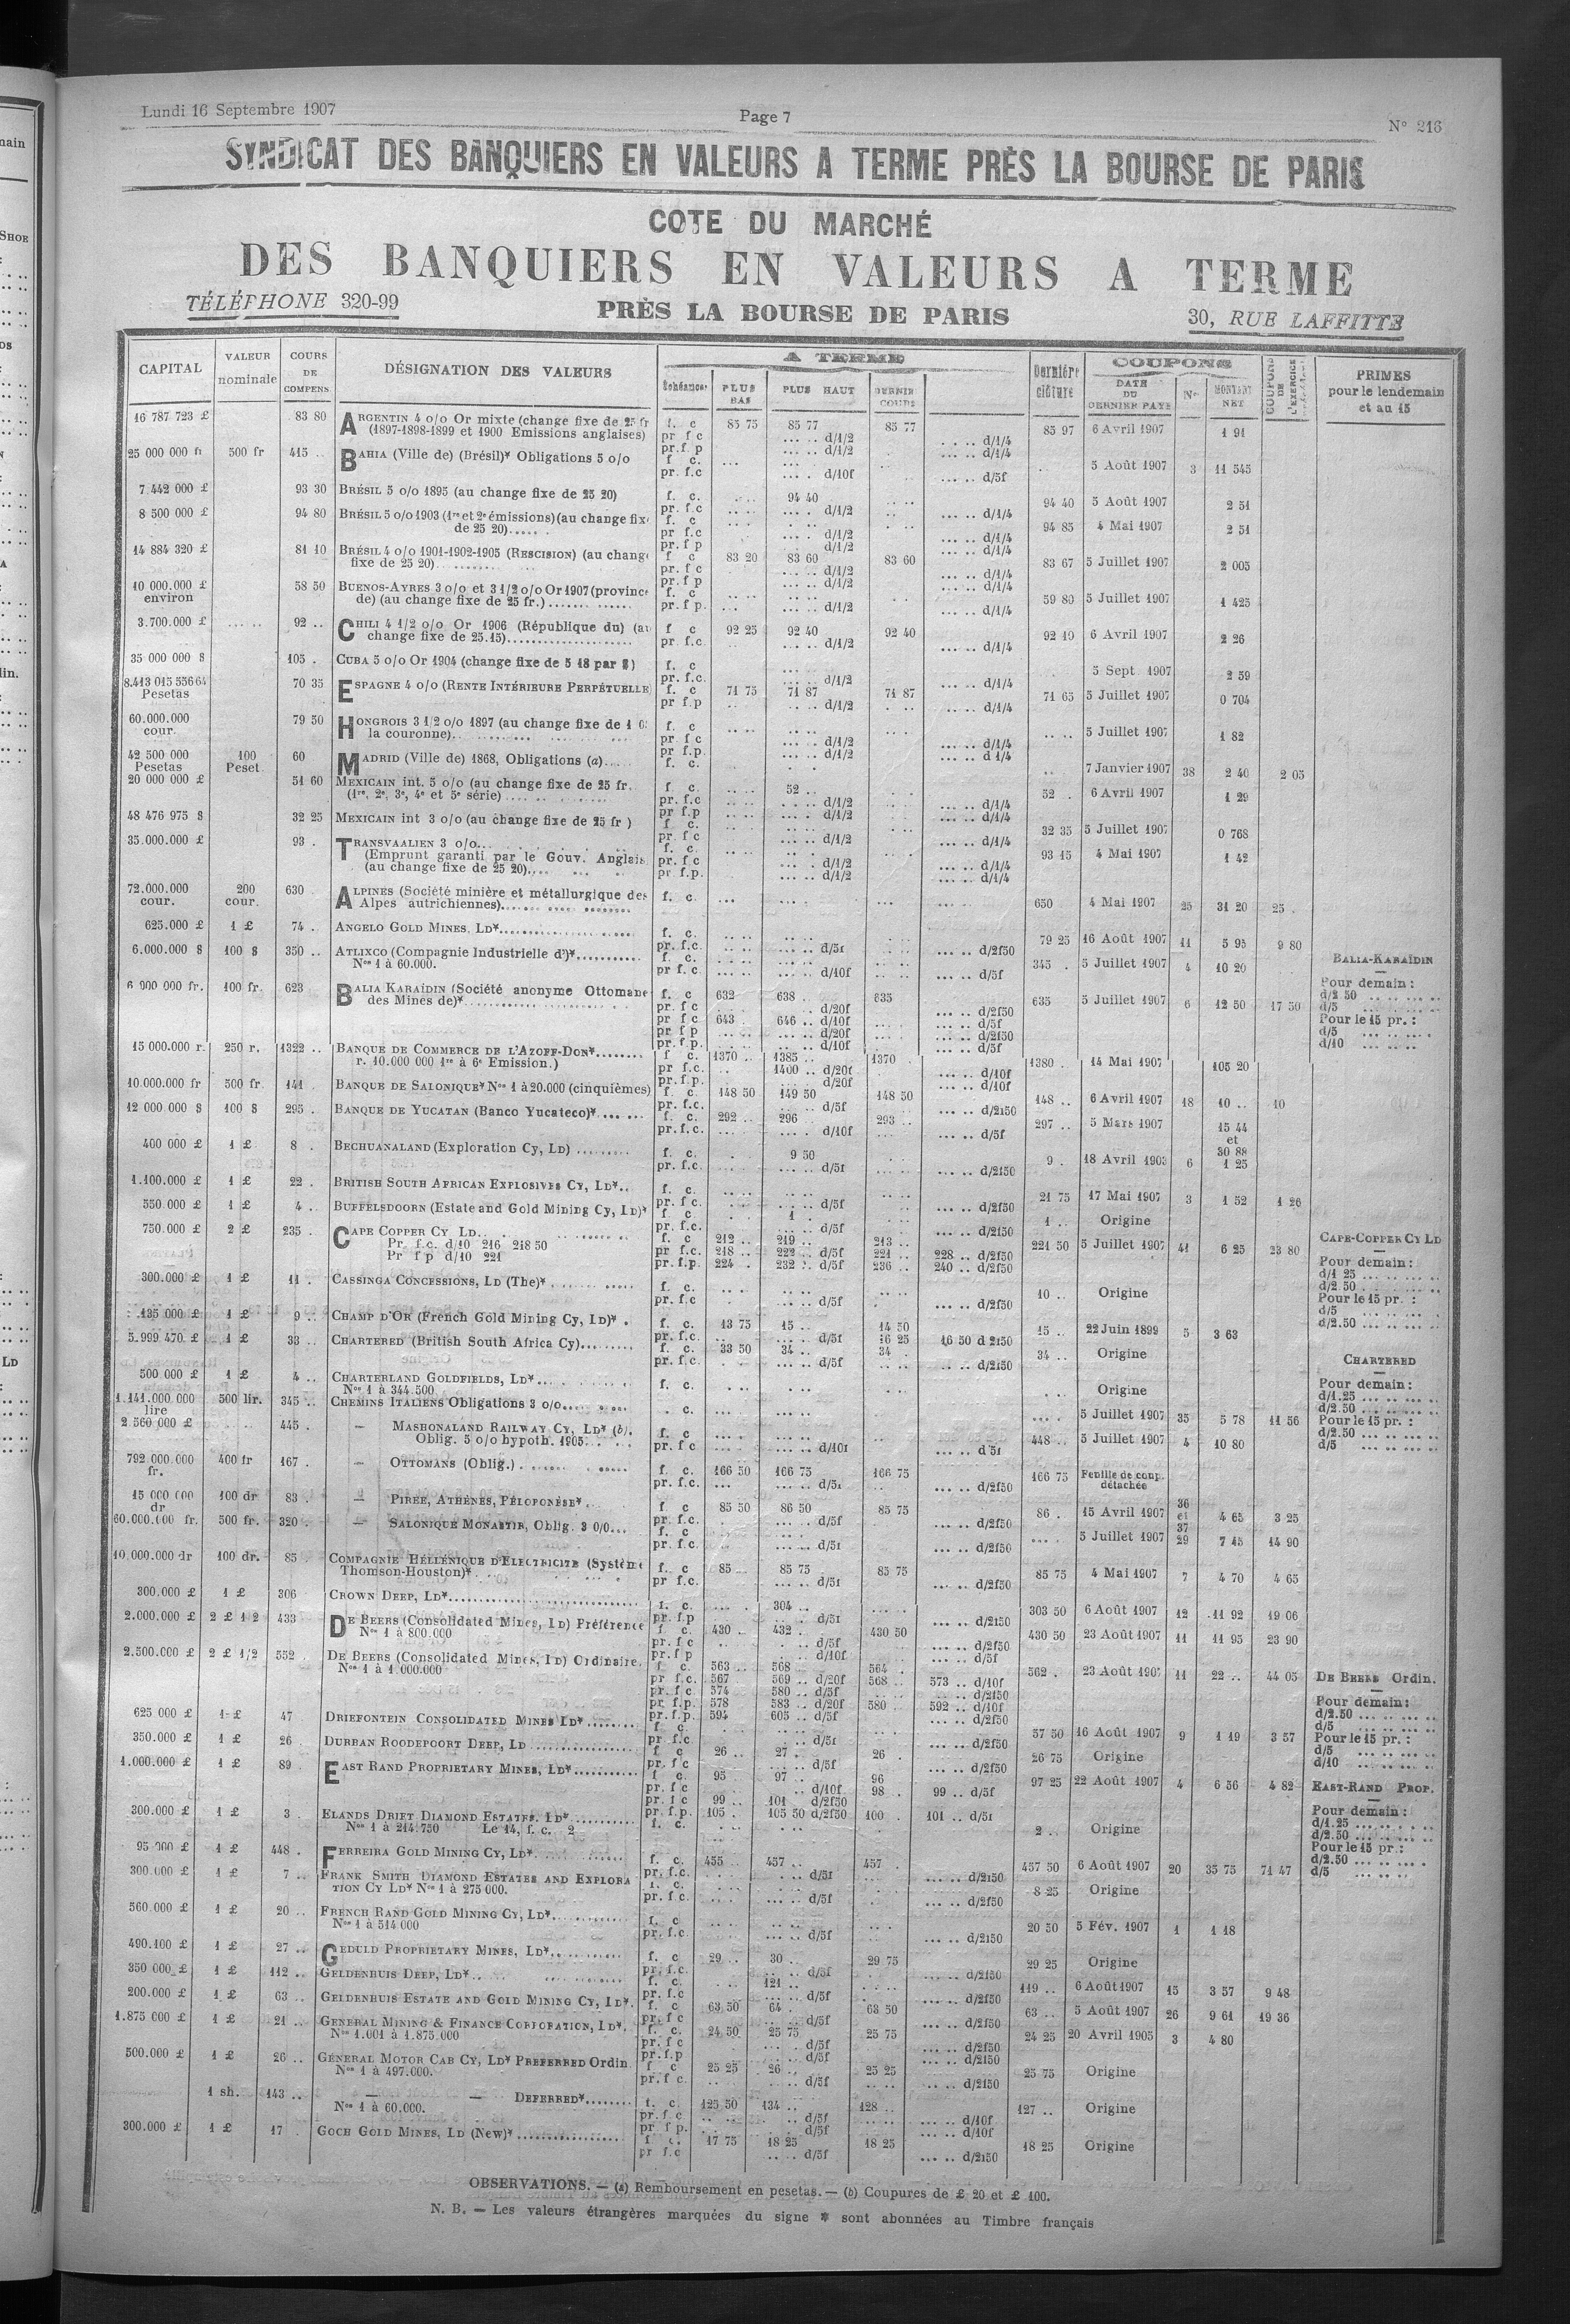 Lundi 16 Septembre 1907
Page 7
N° 216
SYNDICAT DES BANQUIERS EN VALEURS A TERME PRÈS LA BOURSE DE PARIS
COTE DU MARCHÉ
DES BANQUIERS EN VALEURS A TERME
TÉLÉPHONE 320-99
PRÈS LA BOURSE DE PARIS
30, RUE LAFFITTE
CAPITAL VALEUR nominale COURS DE COMPENS. DÉSIGNATION DES VALEURS A TERME PLUS BAS PLUS HAUT DERNIER COURS Dernière clôture COUPONS DATE DU DERNIER PAYE Nos MONTANT NET COUPONS DE L'EXERCICE PRIMES pour le lendemain et au 15
16 787 723 £ 83 80 ARGENTIN 4 o/o Or mixte (change fixe de 25 fr f. c 85 75 85 77 85 77 85 97 6 Avril 1907 1 91
(1897-1898-1899 et 1900 Emissions anglaises) pr f c d/1/2 d/1/4
25 000 000 fr 500 fr 415 BAHIA (Ville de) (Brésil)* Obligations 5 o/o f c. 5 Août 1907 3 11 545
pr. f.c d/10f d/5f
7 442 000 £ 93 30 BRÉSIL 5 o/o 1895 (au change fixe de 25 20) f. c. 94 40 94 40 5 Août 1907 2 51
8 500 000 £ 94 80 BRÉSIL 5 o/o 1903 (1re et 2e émissions) (au change fixe f. c 94 85 4 Mai 1907 2 51
de 25 20) pr f.c d/1/2 d/1/4
14 884 320 £ 81 10 BRÉSIL 4 o/o 1901-1902-1905 (RESCISION) (au change f c 83 20 83 60 83 60 83 67 5 Juillet 1907 2 005
fixe de 25 20) pr f c d/1/2 d/1/4
10 000.000 £ environ 58 50 BUENOS-AYRES 3 o/o et 3 1/2 o/o Or 1907 (province f. c 59 80 5 Juillet 1907 1 425
de) (au change fixe de 25 fr.) pr. f p. d/1/2 d/1/4
3.700.000 £ 92 CHILI 4 1/2 o/o Or 1906 (République du) (au f c 92 25 92 40 92 40 92 10 6 Avril 1907 2 26
change fixe de 25.15) pr. f.c. d/1/2 d/1/4
35 000 000 $ 105 CUBA 5 o/o Or 1904 (change fixe de 5 18 par $) f. c 5 Sept 1907 2 59
Pesetas 70 35 ESPAGNE 4 o/o (RENTE INTÉRIEURE PERPÉTUELLE f. c 71 75 71 87 71 87 71 65 5 Juillet 1907 0 704
60.000.000 cour. 79 50 HONGROIS 3 1/2 o/o 1897 (au change fixe de 1 f. c 5 Juillet 1907 1 82
la couronne) pr f c d/1/2 d/1/4
42 500 000 Pesetas 100 Peset. 60 MADRID (Ville de) 1868, Obligations (a) f. c. 7 Janvier 1907 38 2 40 2 05
20 000 000 £ 51 60 MEXICAIN int. 5 o/o (au change fixe de 25 fr. f c. 52 52 6 Avril 1907 1 29
(1re, 2e, 3e, 4e et 5e série) pr. f.c d/1/2 d/1/4
48 476 975 $ 32 25 MEXICAIN int 3 o/o (au change fixe de 25 fr ) f. c. 32 35 5 Juillet 1907 0 768
35.000.000 £ 93 TRANSVAALIEN 3 o/o f. c. 93 15 4 Mai 1907 1 42
(Emprunt garanti par le Gouv. Anglais pr. f c d/1/2 d/1/4
(au change fixe de 25 20) pr. f.p. d/1/2 d/1/4
72.000.000 cour. 200 cour. 630 ALPINES (Société minière et métallurgique des f. c. 650 4 Mai 1907 25 31 20 25
Alpes autrichiennes)
625.000 £ 1 £ 74 ANGELO GOLD MINES, LD* f. c. 79 25 16 Août 1907 11 5 95 9 80
6.000.000 $ 100 $ 350 ATLIXCO (Compagnie Industrielle d')* f. c. 345 5 Juillet 1907 4 10 20
Nos 1 à 60.000. pr f. c d/10f d/5f
BALIA-KARAÏDIN
6 900 000 fr. 100 fr. 623 BALIA KARAÏDIN (Société anonyme Ottomane f. c 632 638 635 635 5 Juillet 1907 6 12 50 17 50
des Mines de)* pr. f c d/20f d/2f50
pr f c 643 646 d/10f d/5f
Pour demain :
d/2 50
d/5
Pour le 15 pr. :
d/5
d/10
15 000.000 r. 250 r. 1322 BANQUE DE COMMERCE DE L'AZOFF-DON* f c. 1370 1385 1370 1380 14 Mai 1907 105 20
r. 10.000 000 1re à 6e Emission.) pr f.c. 1400 d/20f d/10f
10.000.000 fr 500 fr. 141 BANQUE DE SALONIQUE* Nos 1 à 20.000 (cinquièmes) f. c. 148 50 149 50 148 50 148 6 Avril 1907 18 10 10
12 000 000 $ 100 $ 295 BANQUE DE YUCATAN (Banco Yucateco)* f. c. 292 296 293 297 5 Mars 1907 15 44 et 30 88
400 000 £ 1 £ 8 BECHUANALAND (Exploration Cy, LD) f. c. 9 50 9 18 Avril 1903 6 1 25
1.100.000 £ 1 £ 22 BRITISH SOUTH AFRICAN EXPLOSIVES CY, LD* f. c. 21 75 17 Mai 1907 3 1 52 1 26
550.000 £ 1 £ 4 BUFFELSDOORN (Estate and Gold Mining Cy, LD)* f c 1 1 Origine
750.000 £ 2 £ 235 CAPE COPPER CY LD f. c 212 219 213 221 50 5 Juillet 1907 41 6 25 23 80
Pr. f.c. d/10 216 218 50 pr f.c. 218 222 d/5f 221 228 d/2f50
Pr f p d/10 221 pr. f.p. 224 232 d/5f 236 240 d/2f50
CAPE-COPPER CY LD
Pour demain :
d/1 25
d/2.50
Pour le 15 pr. :
d/5
d/2.50
300.000 £ 1 £ 11 CASSINGA CONCESSIONS, LD (The)* f. c. 10 Origine
135 000 £ 1 £ 9 CHAMP D'OR (French Gold Mining Cy, LD)* f. c. 13 75 15 14 50 15 22 Juin 1899 5 3 63
5.999 470 £ 1 £ 33 CHARTERED (British South Africa Cy) f. c. 33 50 34 34 34 Origine
CHARTERED
Pour demain :
d/1.25
d/2.50
Pour le 15 pr. :
d/2.50
d/5
500 000 £ 1 £ 4 CHARTERLAND GOLDFIELDS, LD* f. c. Origine
Nos 1 à 344.500
1.141.000 000 lire 500 lir. 345 CHEMINS ITALIENS Obligations 3 o/o c. 5 Juillet 1907 35 5 78 11 56
2 560 000 £ 445 — MASHONALAND RAILWAY CY, LD* (b). f. c 448 5 Juillet 1907 4 10 80
Oblig. 5 o/o hypoth. 1905 pr f c d/10f d 5f
792 000.000 fr. 400 fr 167 — OTTOMANS (Oblig.) f. c. 166 50 166 75 166 75 166 75 Feuille de coup. détachée
15 000 000 dr 100 dr 83 — PIRÉE, ATHÈNES, PÉLOPONÈSE* f c 85 50 86 50 85 75 86 15 Avril 1907 36 et 37 4 65 3 25
60.000.000 fr. 500 fr. 320 — SALONIQUE MONASTIR, Oblig. 3 0/0 f. c 5 Juillet 1907 29 7 45 14 90
10.000.000 dr 100 dr. 85 COMPAGNIE HELLÉNIQUE D'ÉLECTRICITÉ (Système f. c 85 85 75 85 75 85 75 4 Mai 1907 7 4 70 4 65
Thomson-Houston)* pr f.c. d/5f d/2f50
300.000 £ 1 £ 306 CROWN DEEP, LD* f. c. 304 303 50 6 Août 1907 12 11 92 19 06
2.000.000 £ 2 £ 1 2 433 DE BEERS (Consolidated Mines, LD) Préférence f. c. 430 432 430 50 430 50 23 Août 1907 11 11 95 23 90
Nos 1 à 800.000 pr. f c d/5f d/2f50
2.500.000 £ 2 £ 1/2 552 DE BEERS (Consolidated Mines, LD) Ordinaire. f. c. 563 568 564 562 23 Août 1907 11 22 44 05
Nos 1 à 1.000.000 pr f.c. 567 569 d/20f 568 573 d/10f
pr. f c. 574 580 d/5f d/2f50
pr. f.p. 578 583 d/20f 580 592 d/10f
pr. f.p. 594 605 d/5f d/2f50
DE BEERS Ordin.
Pour demain :
d/2.50
d/5
Pour le 15 pr. :
d/5
d/10
625 000 £ 1 £ 47 DRIEFONTEIN CONSOLIDATED MINES LD* f c. 57 50 16 Août 1907 9 1 19 3 57
350.000 £ 1 £ 26 DURBAN ROODEPOORT DEEP, LD f c 26 27 26 26 75 Origine
1.000.000 £ 1 £ 89 EAST RAND PROPRIETARY MINES, LD* f c. 95 97 96 97 25 22 Août 1907 4 6 56 4 82
pr. f c d/10f 98 99 d/5f
pr. f c 99 101 d/2f50
pr. f.p. 105 105 50 d/2f50 100 101 d/5f
EAST-RAND PROP.
Pour demain :
d/1.25
d/2.50
Pour le 15 pr. :
d/2.50
d/5
300.000 £ 1 £ 3 ELANDS DRIFT DIAMOND ESTATES, LD* f. c. 2 Origine
Nos 1 à 214.750 Le 14, f. c. 2
95 000 £ 1 £ 448 FERREIRA GOLD MINING CY, LD* f. c. 455 457 457 457 50 6 Août 1907 20 35 75 71 47
300.000 £ 1 £ 7 FRANK SMITH DIAMOND ESTATES AND EXPLORA f. c. 8 25 Origine
TION CY LD* Nos 1 à 275 000. pr. f c. d/5f d/2f50
560.000 £ 1 £ 20 FRENCH RAND GOLD MINING CY, LD* f. c 20 50 5 Fév. 1907 1 1 18
Nos 1 à 514 000 pr. f.c. d/5f d/2f50
490.100 £ 1 £ 27 GEDULD PROPRIETARY MINES, LD* f. c 29 30 29 75 29 25 Origine
350 000 £ 1 £ 112 GELDENHUIS DEEP, LD* f. c. 121 119 6 Août 1907 15 3 57 9 48
200.000 £ 1 £ 63 GELDENHUIS ESTATE AND GOLD MINING CY, LD* f. c 63 50 64 63 50 63 5 Août 1907 26 9 61 19 36
1.875 000 £ 1 £ 21 GENERAL MINING & FINANCE CORPORATION, LD* f. c. 24 50 25 75 25 75 24 25 20 Avril 1905 3 4 80
Nos 1.001 à 1.875.000 pr. f c d/5f d/2f50
500.000 £ 1 £ 26 GÉNÉRAL MOTOR CAB CY, LD* PREFERRED Ordin. f c 25 25 26 25 25 25 75 Origine
Nos 1 à 497.000. pr. f c. d/5f d/2f50
1 sh. 143 — — DEFERRED* f. c. 125 50 134 128 127 Origine
Nos 1 à 60.000. pr. f c d/5f d/10f
300.000 £ 1 £ 17 GOCH GOLD MINES, LD (New)* f c. 17 75 18 25 18 25 18 25 Origine
pr f.c d/5f d/2f50
OBSERVATIONS. — (a) Remboursement en pesetas. — (b) Coupures de £ 20 et £ 100.
N. B. — Les valeurs étrangères marquées du signe * sont abonnées au Timbre français